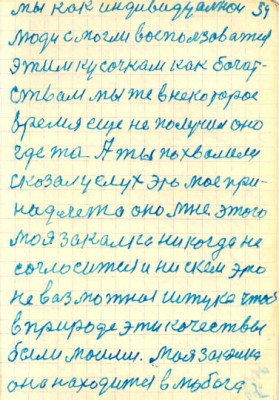 мы как индивидуалной 34
люди смогли воспользоватся
этим кусочкам как богат-
ствам мы же в некоторое
время еще не получил оно
где та. А ты похвалили
сказал у слух это мое при-
надлежа оно мне. этого
моя закалка никогда не
согласится и ни скем это
не возможная штука чтоб
в природе эти качествы
были моими. моя закалка
она находится в любога